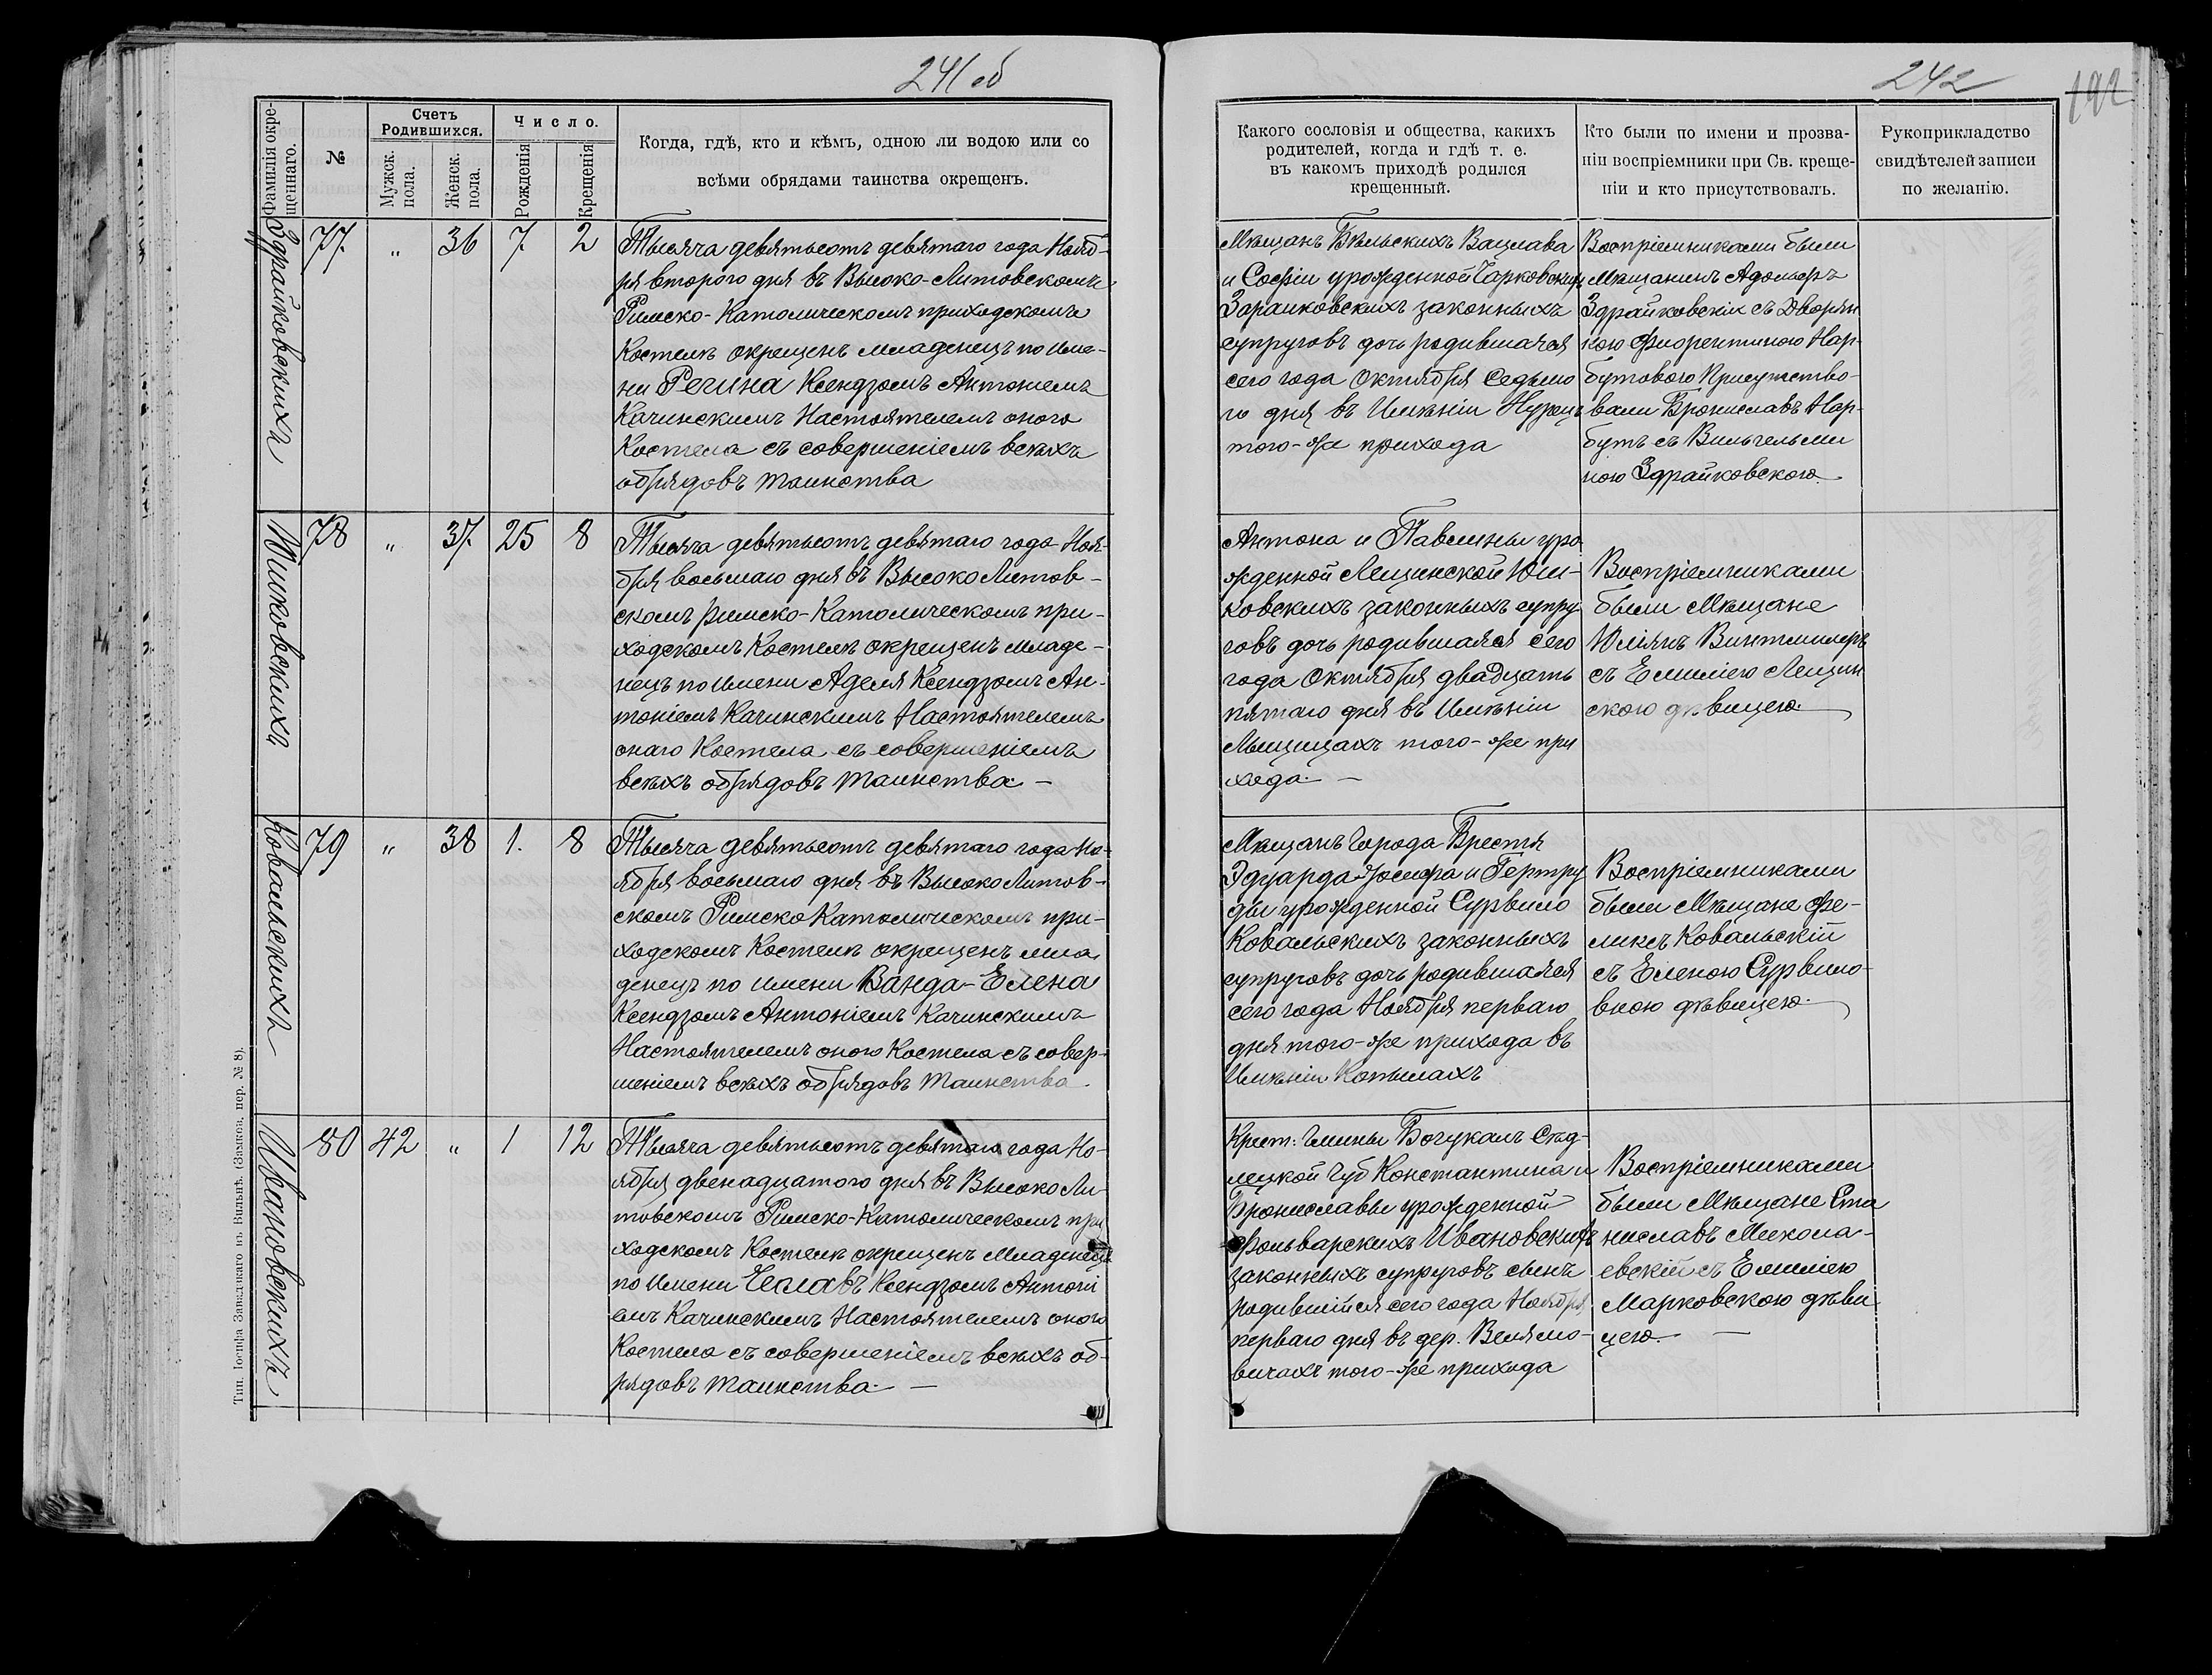 241 об
Фамилія окре-
щеннаго.
№
Счетъ
Родившихся.
Мужск.
пола.
Женск.
пола.
Число.
Рожденія
Крещенія
Когда, гдѣ, кто и кѣмъ, одною ли водою или со
всѣми обрядами таинства окрещенъ.
Здрайковскихъ
77
"
36
7
2
Тысяча девятьсотъ девятаго года Нояб-
ря второго дня въ Высоко-Литовскомъ
Римско-Католическомъ приходскомъ
Костелѣ окрещенъ младенецъ по име-
ни Регина Ксендзомъ Антоніемъ
Качинскимъ Настоятелемъ оного
Костела съ совершеніемъ всѣхъ
обрядовъ таинства
Юшковскихъ
78
"
37.
25
8
Тысяча девятьсотъ девятаго года Ноя-
бря восьмаго дня въ Высоко Литов-
скомъ Римско-Католическомъ при-
ходскомъ Костелѣ окрещенъ младе-
нецъ по имени Аделя Ксендзомъ Ан-
тоніемъ Качинскимъ Настоятелемъ
онаго Костела съ совершеніемъ
всѣхъ обрядовъ таинства. —
Ковальскихъ
79
"
38
1.
8
Тысяча девятьсотъ девятаго года Но-
ября восьмаго дня въ Высоко Литов-
скомъ Римско Католическомъ при-
ходскомъ Костелѣ окрещенъ мла-
денецъ по имени Ванда-Елена
Ксендзомъ Антоніемъ Качинскимъ
Настоятелемъ оного Костела съ совер-
шеніемъ всѣхъ обрядовъ таинства.
Ивановскихъ
80
42
"
1
12
Тысяча девятьсотъ девятаго года Но-
ября двенадцатого дня въ Высоко Ли-
товскомъ Римско-Католическомъ при
ходскомъ Костелѣ окрещенъ Младенецъ
по имени Чеславъ Ксендзомъ Антоні
емъ Качинскимъ Настоятелемъ оного
Костела съ совершеніемъ всѣхъ об-
рядовъ таинства. —
Тип. Іосифа Завадзкаго въ Вильнѣ. (Замков. пер. № 8).
242
192
Какого сословія и общества, какихъ
родителей, когда и гдѣ т. е.
въ какомъ приходѣ родился
крещенный.
Кто были по имени и прозва-
ніи воспріемники при Св. креще-
ніи и кто присутствовалъ.
Рукоприкладство
свидѣтелей записи
по желанію.
Мѣщанъ Бѣльскихъ Вацлава
и Софіи урожденной Чарковскихъ
Зараиковскихъ законныхъ
супруговъ дочь родившаяся
сего года Октября Седьмо
го дня въ Имѣніи Нурецъ
того-же прихода
Воспріемниками были
Мѣщанинъ Адольфъ
Здрайковскій съ Дворян
кою Флорентиною Нар-
бутового Присутство-
вали Брониславъ Нар-
бутъ съ Вильгельми
ною Здрайковскою.
Антона и Павлины уро
жденной Лещинской Юш-
ковскихъ законныхъ супру
говъ дочь родившаяся сего
года Октября двадцать
пятаго дня въ Имѣніи
Лыщицахъ того-же при
хода. —
Воспріемниками
были Мѣщане
Юліянъ Винтмилеръ
съ Емиліею Лещин
скою дѣвицею.
Мѣщанъ Города Бреста
Эдуарда-Іосифа и Гертру
ды урожденной Сурвило
Ковальскихъ законныхъ
супруговъ дочь родившаяся
сего года Ноября перваго
дня того-же прихода въ
Имѣніи Котылахъ
Воспріемниками
были Мѣщане Фе-
ликсъ Ковальскій
съ Еленою Сурвило-
вною дѣвицею.
Крест: Гмины Богукалъ Сѣд-
лецкой Губ Константина и
Брониславы урожденной
Фольварскихъ Ивановскихъ
законныхъ супруговъ сынъ
родившійся сего года Ноября
перваго дня въ дер. Велямо-
вичахъ того-же прихода
Воспріемниками
были Мѣщане Ста
ниславъ Микола-
евскій съ Емиліею
Марковскою дѣви
цею. —